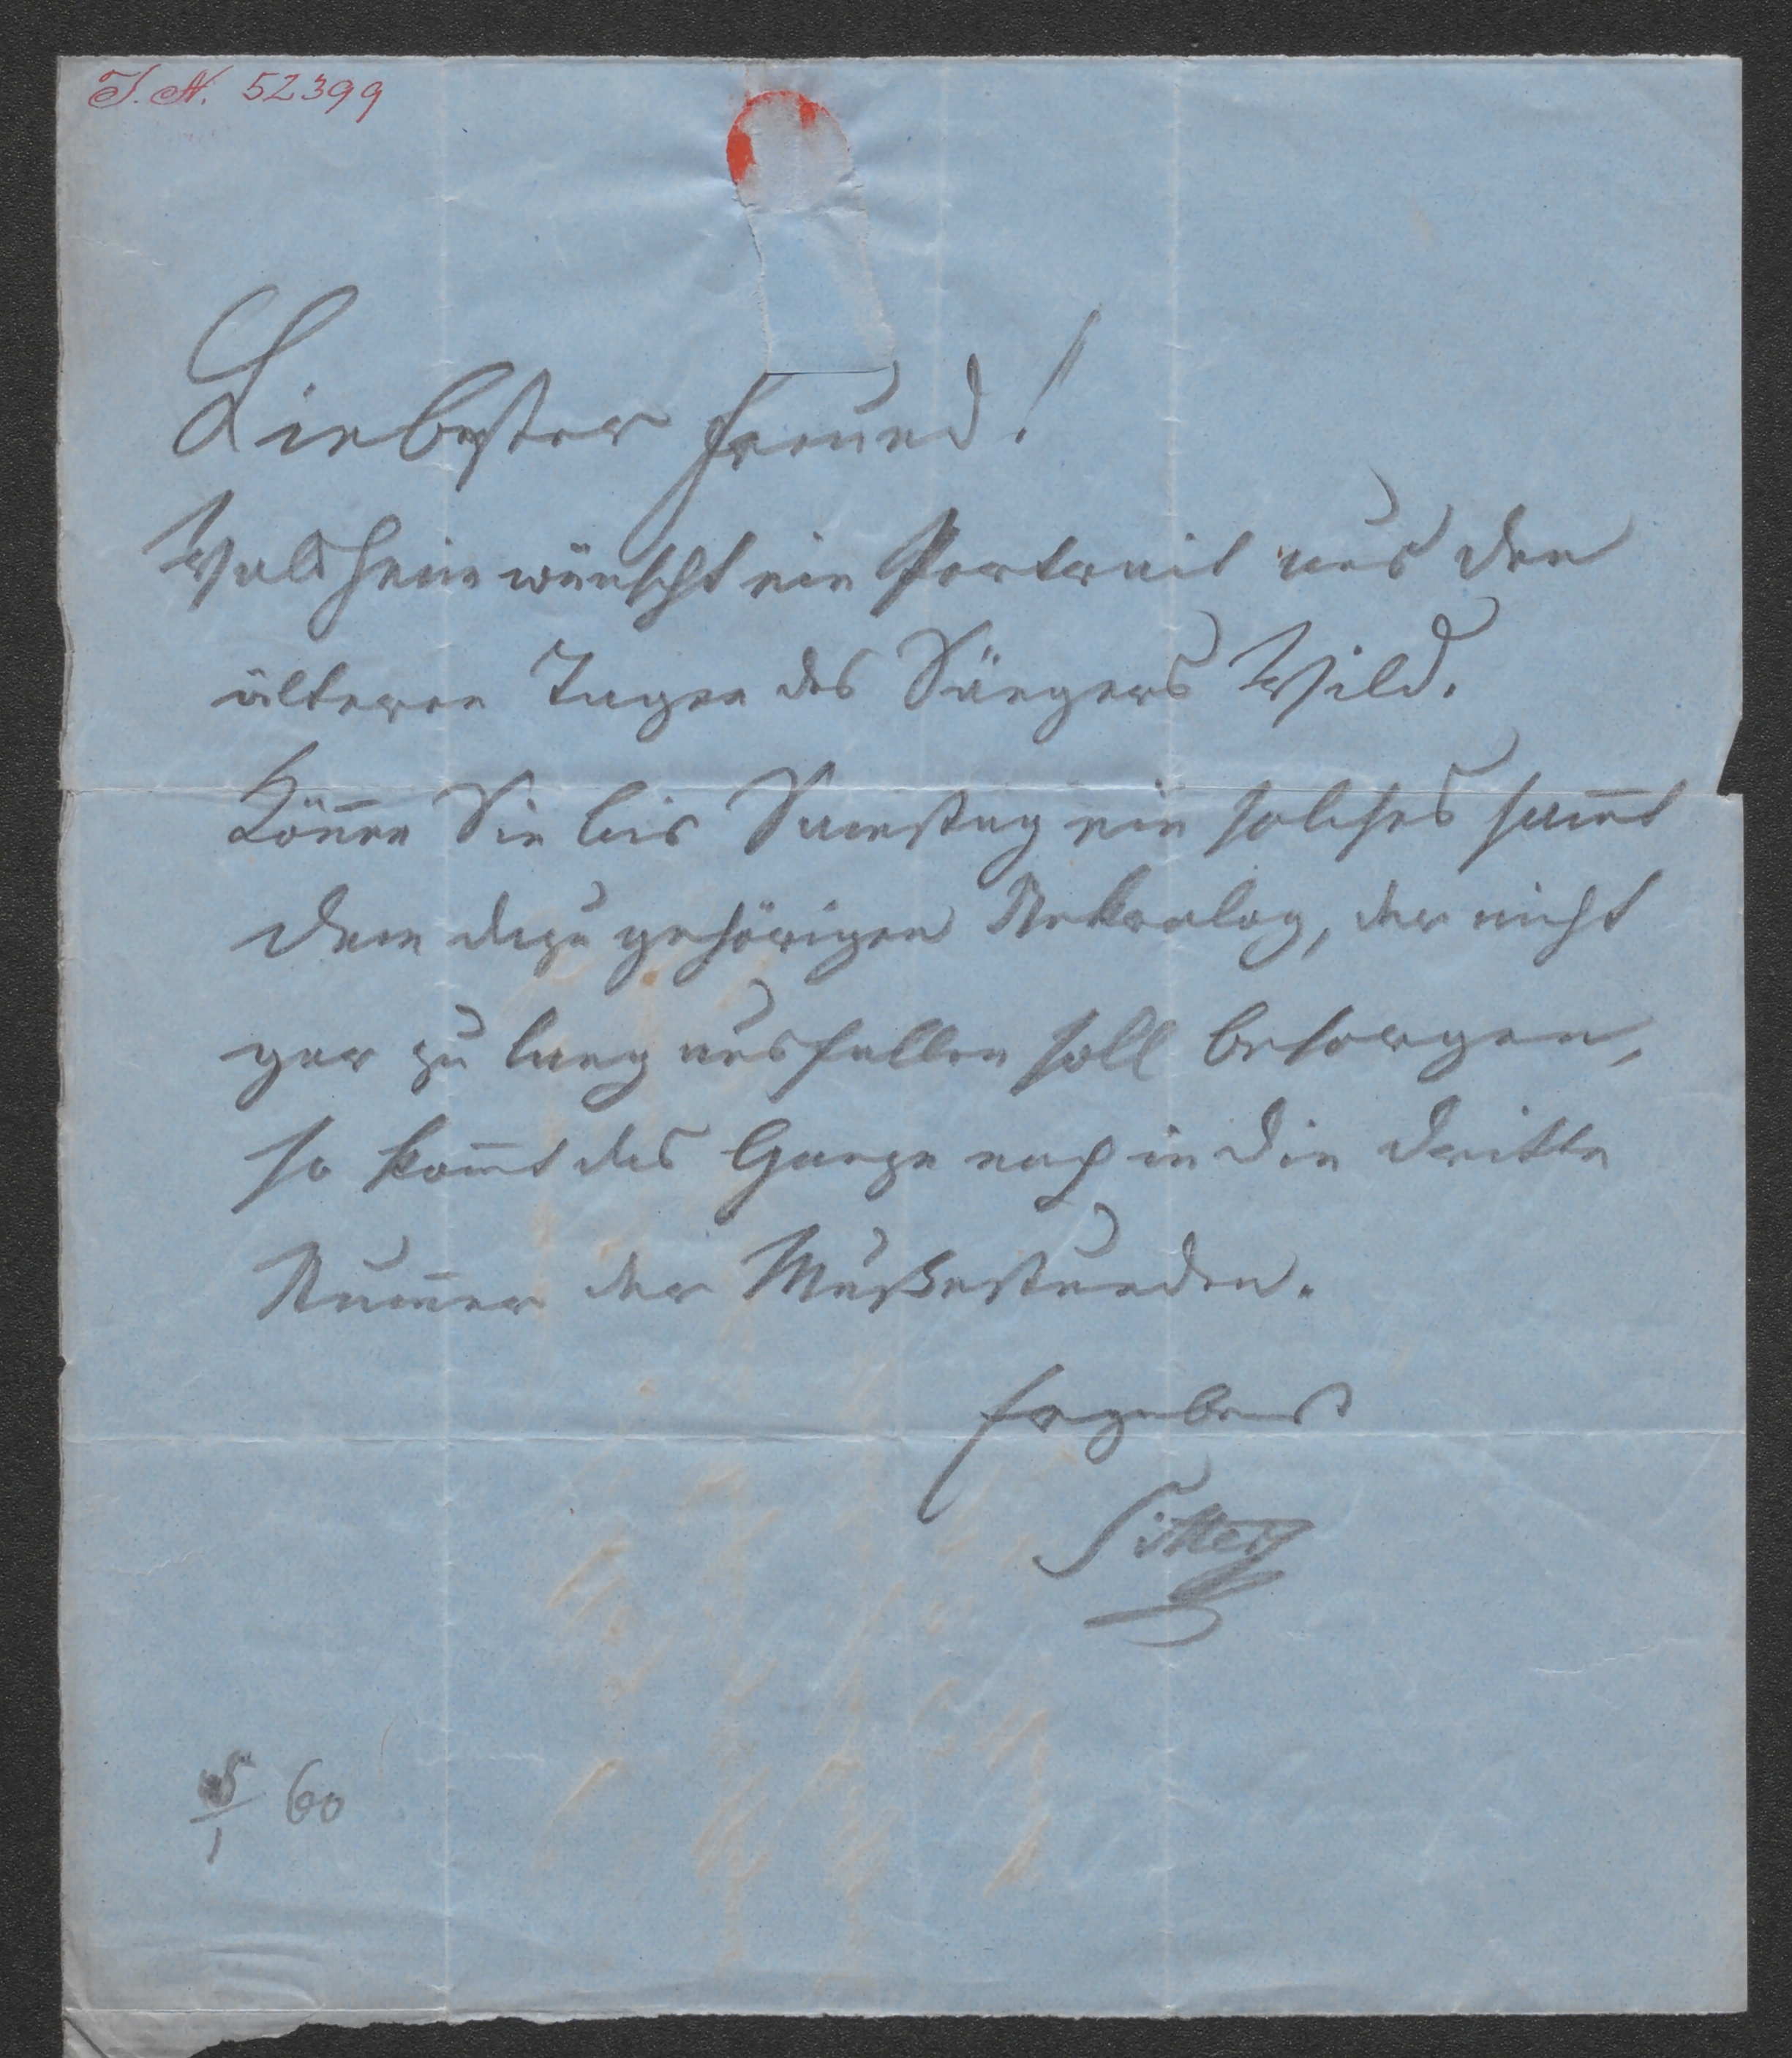 I. N. 52399
Liebster Freund!
Waldheim wünscht ein Portrait aus den
älteren Tagen des Sängers Wild.
Kön̄en Sie bis Samstag ein solches sam̄t
dem dazu gehörigen Nekrolog, der nicht
gar zu lang ausfallen soll besorgen,
so kom̄t das Ganze noch in die dritte
Num̄er der Mußestunden.
Ergebenst
Sitter
5/1 60